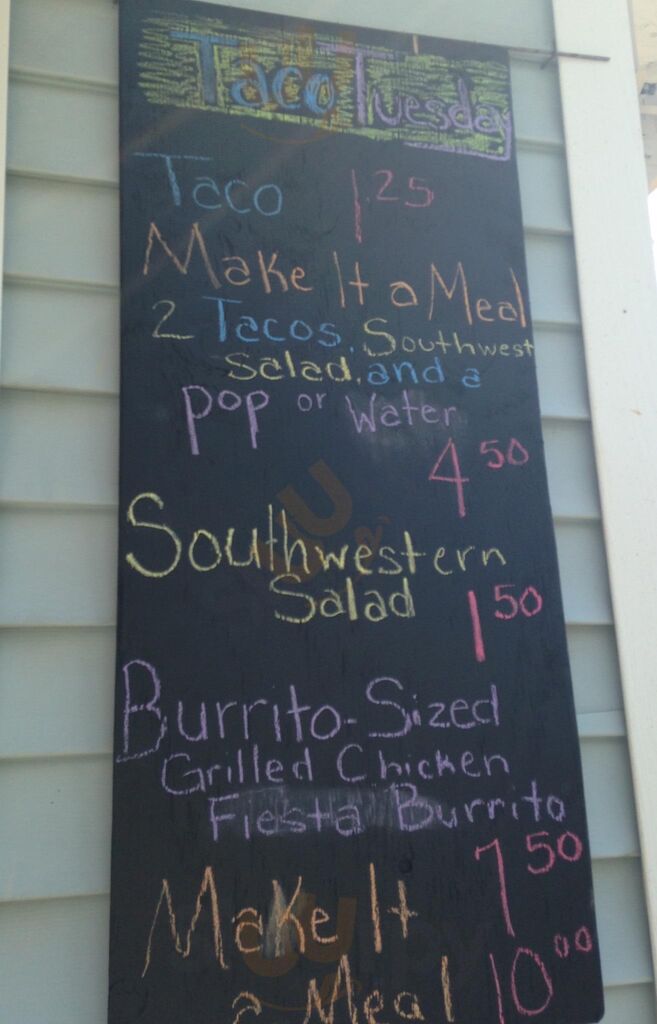 Taco Tuesday
Taco 1.25
Make It a Meal
2 Tacos, Southwest
Salad, and a
pop or Water
4 50
Southwestern
Salad
1 50
Burrito-Sized
Grilled Chicken
Fiesta Burrito
7 50
Make It
a Meal 10 00